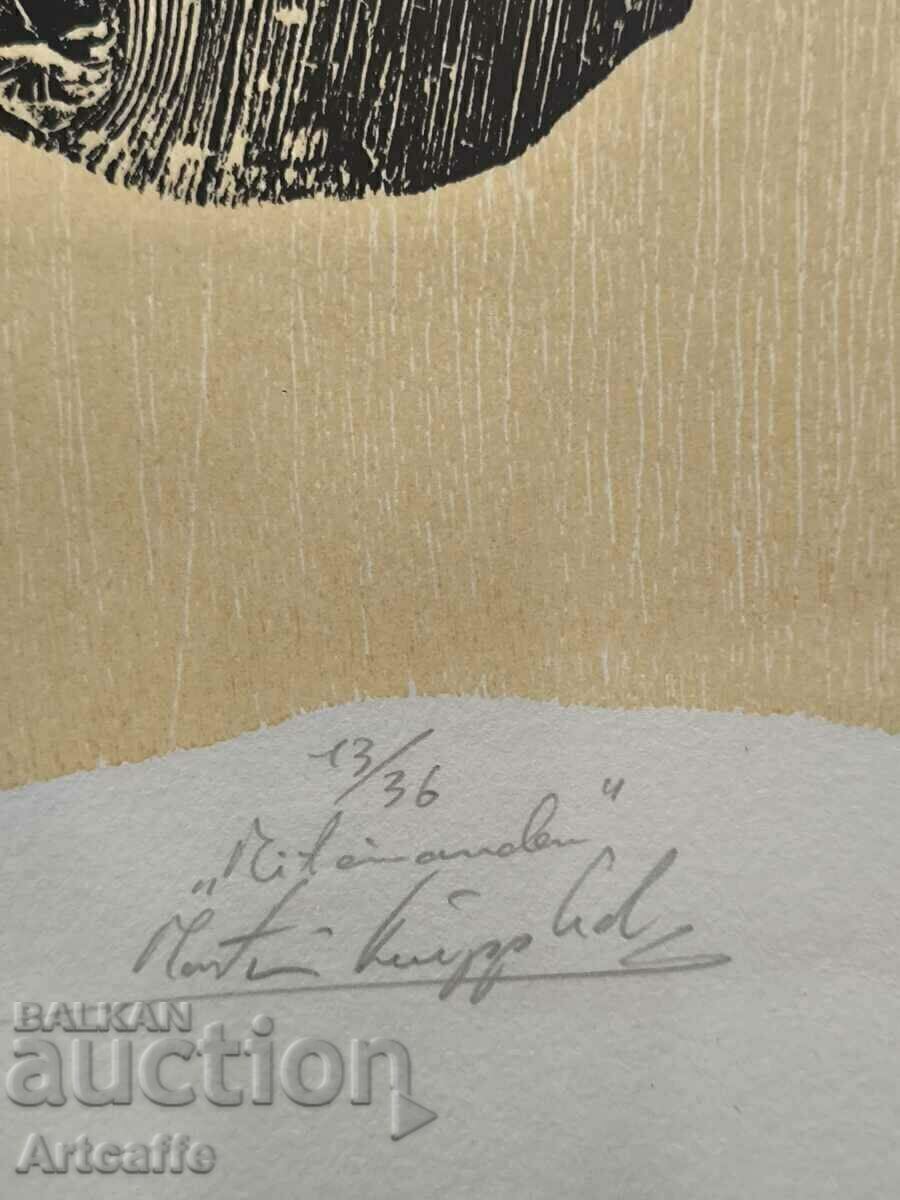 13/36
„Miteinander“
Martin
BALKAN
auction
Artcaffe